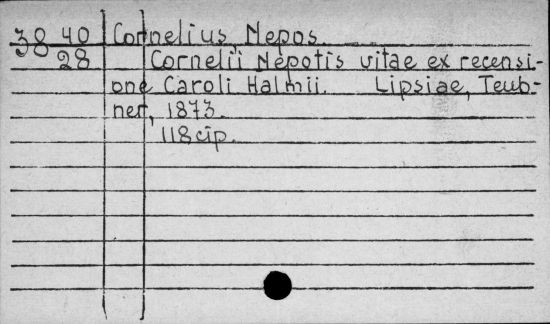 38 40 Cornelius Nepos.
28 Cornelii Nepotis vitae ex recensi-
one Caroli Halmii. Lipsiae, Teub-
ner, 1873.
118 cip.